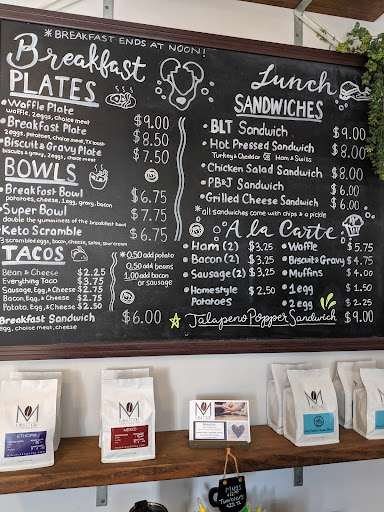 *BREAKFAST ENDS AT NOON!
Breakfast
PLATES
• Waffle Plate $9.00
waffle, 2eggs, choice meat
• Breakfast Plate $8.50
2eggs, potatoes, choice meat, TX toast
• Biscuit & Gravy Plate $7.50
biscuits & gravy, 2eggs, choice meat
BOWLS
• Breakfast Bowl $6.75
potatoes, cheese, 1egg, gravy, bacon
• Super Bowl $7.75
double the yumminess of the breakfast bowl
• Keto Scramble $6.75
3 scrambled eggs, bacon, cheese, salsa, sour cream
TACOS
Bean & Cheese $2.25
Everything Taco $3.75
Sausage, Egg, & Cheese $2.75
Bacon, Egg, & Cheese $2.75
Potato, Egg, & Cheese $2.50
* 0.50 add potato
0.50 add beans
1.00 add bacon
or sausage
Breakfast Sandwich $6.00
egg, choice meat, cheese
Lunch
SANDWICHES
• BLT Sandwich $9.00
• Hot Pressed Sandwich $8.00
Turkey & Cheddar or Ham & Swiss
• Chicken Salad Sandwich $8.00
• PB&J Sandwich $6.00
• Grilled Cheese Sandwich $6.00
*all sandwiches come with chips & a pickle
A la Carte
• Ham (2) $3.25
• Bacon (2) $3.25
• Sausage (2) $3.25
• Homestyle $2.50
Potatoes
• Waffle $5.75
• Biscuit & Gravy $4.75
• Muffins $4.00
• 1egg $1.50
• 2egg $2.25
Jalapeno Popper Sandwich $9.00
NM
ETHIOPIA
NM
MEXICO
NM
MUGS